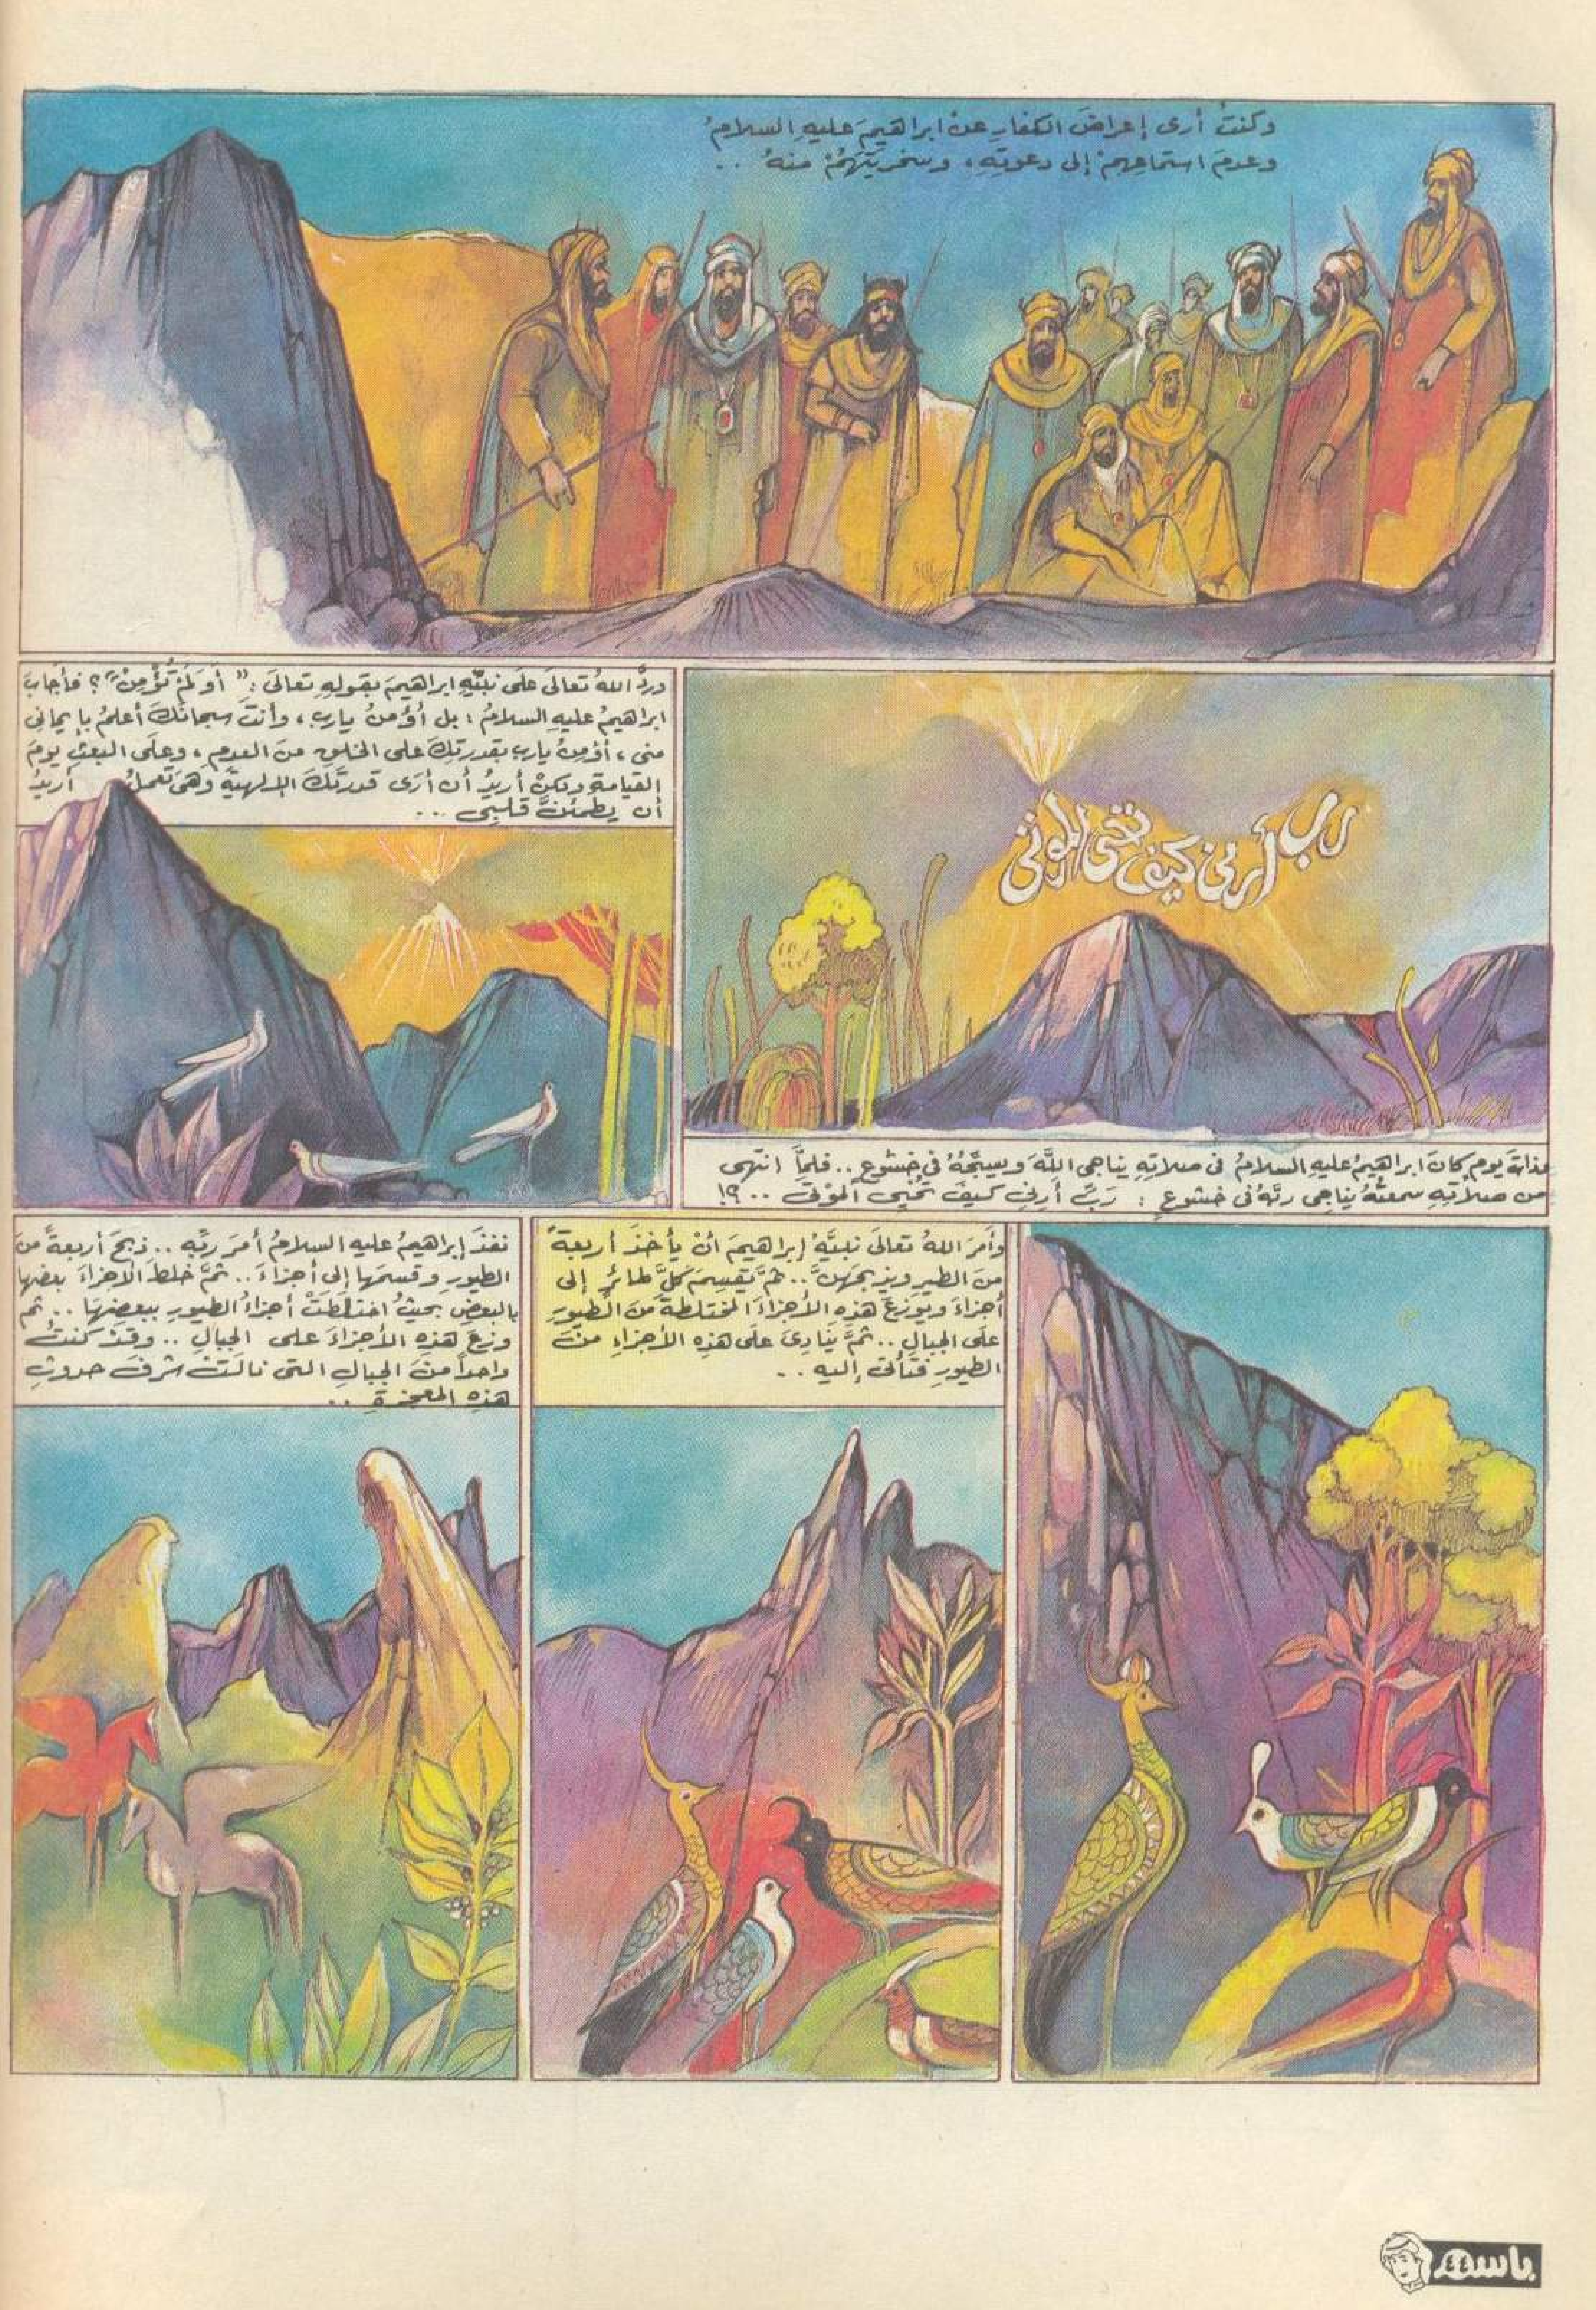 وكنتُ أرى إعراضَ الكفارِ عنْ ابراهيمَ عليهِ السلامُ
وعدمَ استماعِهمْ إلى دعوتِهِ، وسخريتَهُمْ منهُ ..
رب أرني كيف تحي الموتى
فذاتَ يوم كانَ ابراهيمُ عليهِ السلامُ فى صلاتِهِ يناجى اللَّهَ ويسبِّحُهُ فى خشوعٍ .. فلمَّا انتهى
من صلاتِهِ سمعتُهُ يناجى ربَّهُ فى خشوعٍ : رَبِّ أَرِنِى كيفَ تُحْيِى الموْتَى ..؟!
وردَّ اللهُ تعالَى علَى نبيِّهِ ابراهيمَ بقولِهِ تعالَى : " أَوَ لَمْ تُؤْمِنْ "؟ فأجابَ
ابراهيمُ عليهِ السلامُ : بل أؤمنُ يارب ، وأنتَ سبحانَكَ أعلمُ بإيمانى
منى ، أؤمنُ يارب بقدرتِكَ على الخلقِ منَ العدمِ ، وعلَى البعثِ يومَ
القيامةِ ولكنْ أريدُ أن أرَى قدرتَكَ الإلهيةَ وهىَ تعملُ أريدُ
أن يطمئنَّ قلبِى ...
وأمرَ اللهُ تعالَى نبيَّهُ إبراهيمَ أنْ يأخذَ أربعةً
منَ الطيرِ ويذبحَهنَّ .. ثمَّ يقسِمَ كلَّ طائرٍ إلى
أجزاءَ ويوزعَ هذِهِ الأجزاءَ المختلطةَ منَ الطيورِ
علَى الجبالِ .. ثمَّ ينادِىَ علَى هذِهِ الأجزاءِ منَ
الطيورِ فتأتى إليه ..
نفذَ إبراهيمُ عليه السلامُ أمرَ ربِّهِ .. ذبحَ أربعةً منَ
الطيورِ وقسمَها إلى أجزاءَ .. ثمَّ خلطَ الأجزاءَ بعضَها
بالبعضِ بحيثُ اختلطتْ أجزاءُ الطيورِ ببعضِهَا .. ثم
وزعَ هذِهِ الأجزاءَ على الجبالِ .. وقدْ كنتُ
واحداً منَ الجبالِ التى نالَتْ شرفَ حدوثِ
هذِهِ المعجزةِ ..
باسم
٤٤